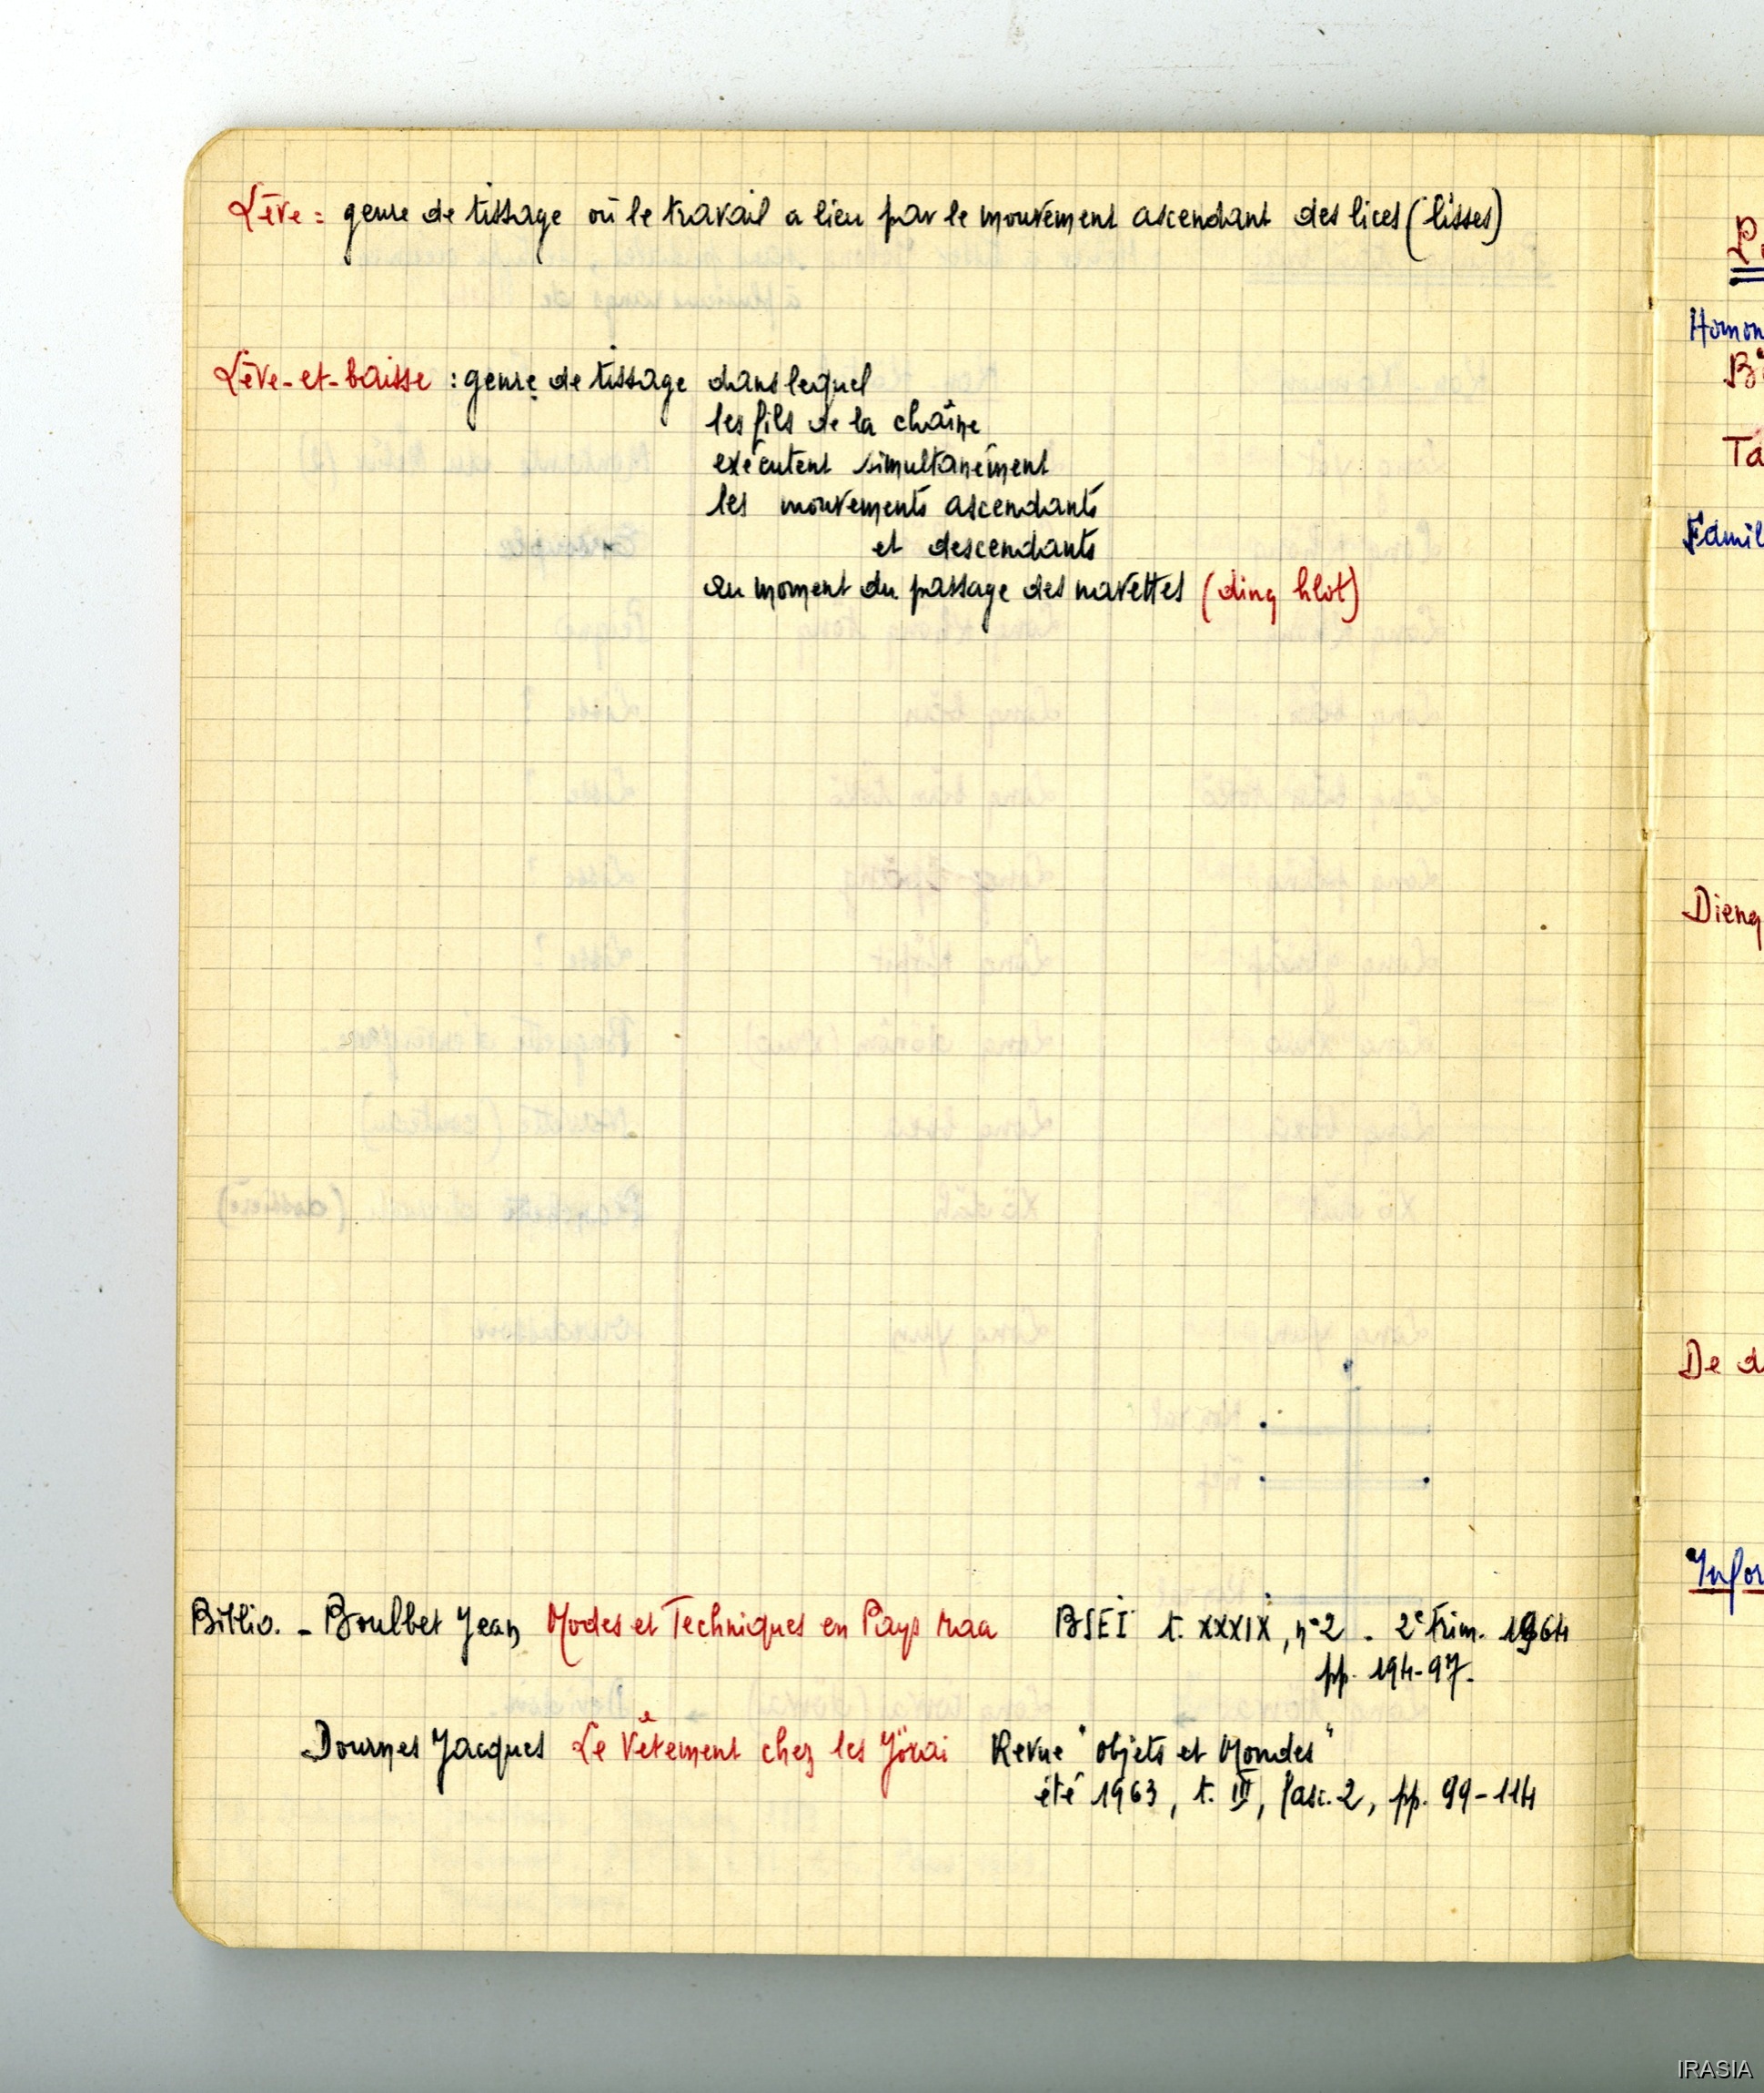 Lève = genre de tissage où le travail a lieu par le mouvement ascendant des lices (lisses)
Lève-et-baisse : genre de tissage dans lequel
les fils de la chaîne
exécutent simultanément
les mouvements ascendants
et descendants
au moment du passage des navettes (ding hlöt)
Biblio. - Boulbet Jean Modes et Techniques en Pays Maa BSEI t. XXXIX, n°2 - 2e Trim. 1964
pp. 194-97.
Dournes Jacques Le Vêtement chez les Jörai Revue "Objets et Mondes"
été 1963, t. III, fasc. 2, pp. 99-114
Homon
Ta
Famil
Dieng
De d
Infor
IRASIA